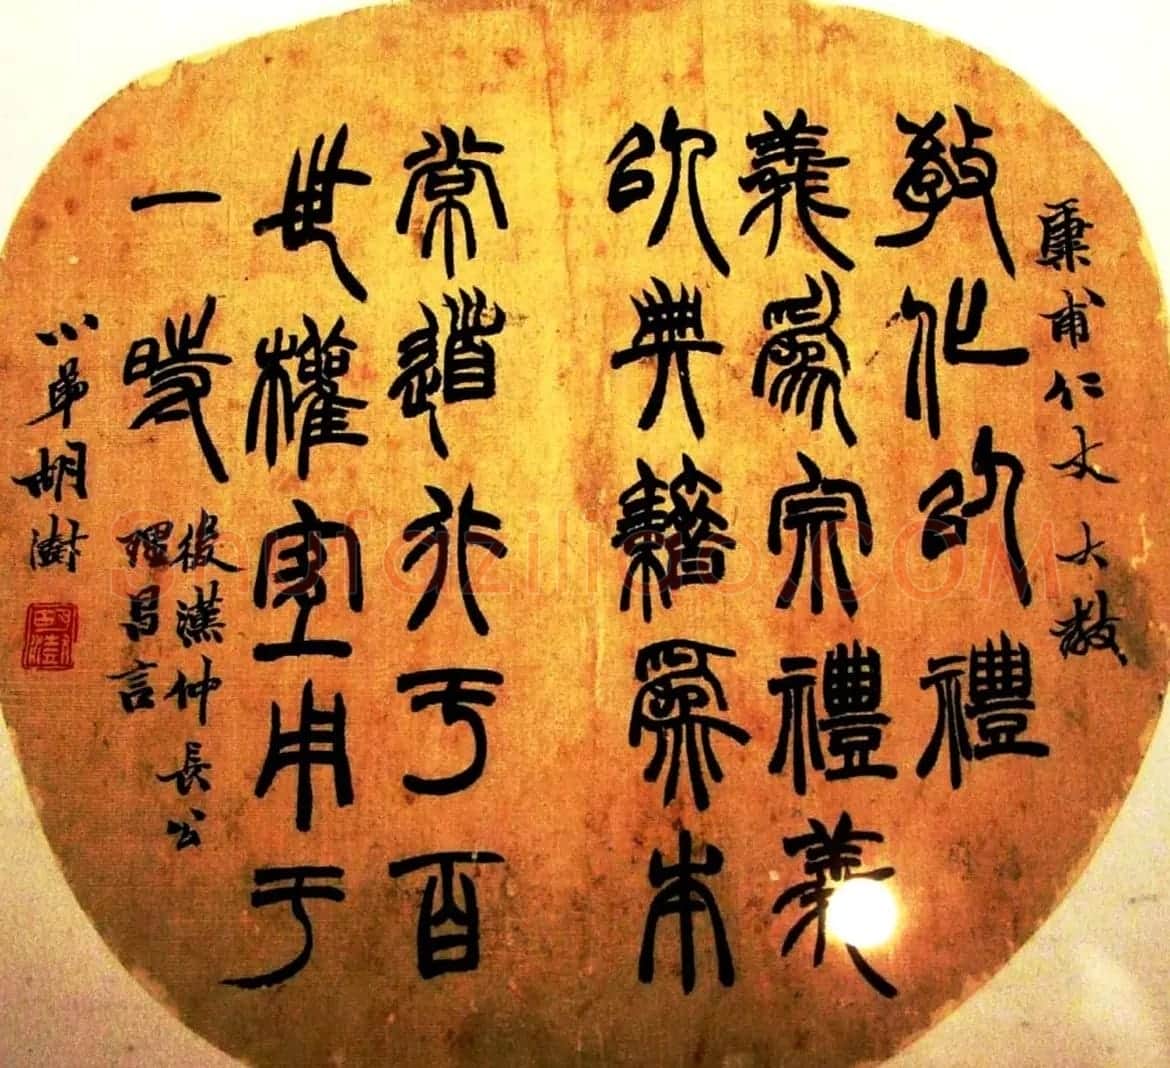 甫仁丈大教
教化以禮
義爲宗禮義
以典籍爲本
常道行于百
世權宜用于
一時
後漢仲長公
理昌言
小弟胡澍
Shufaziliao.COM